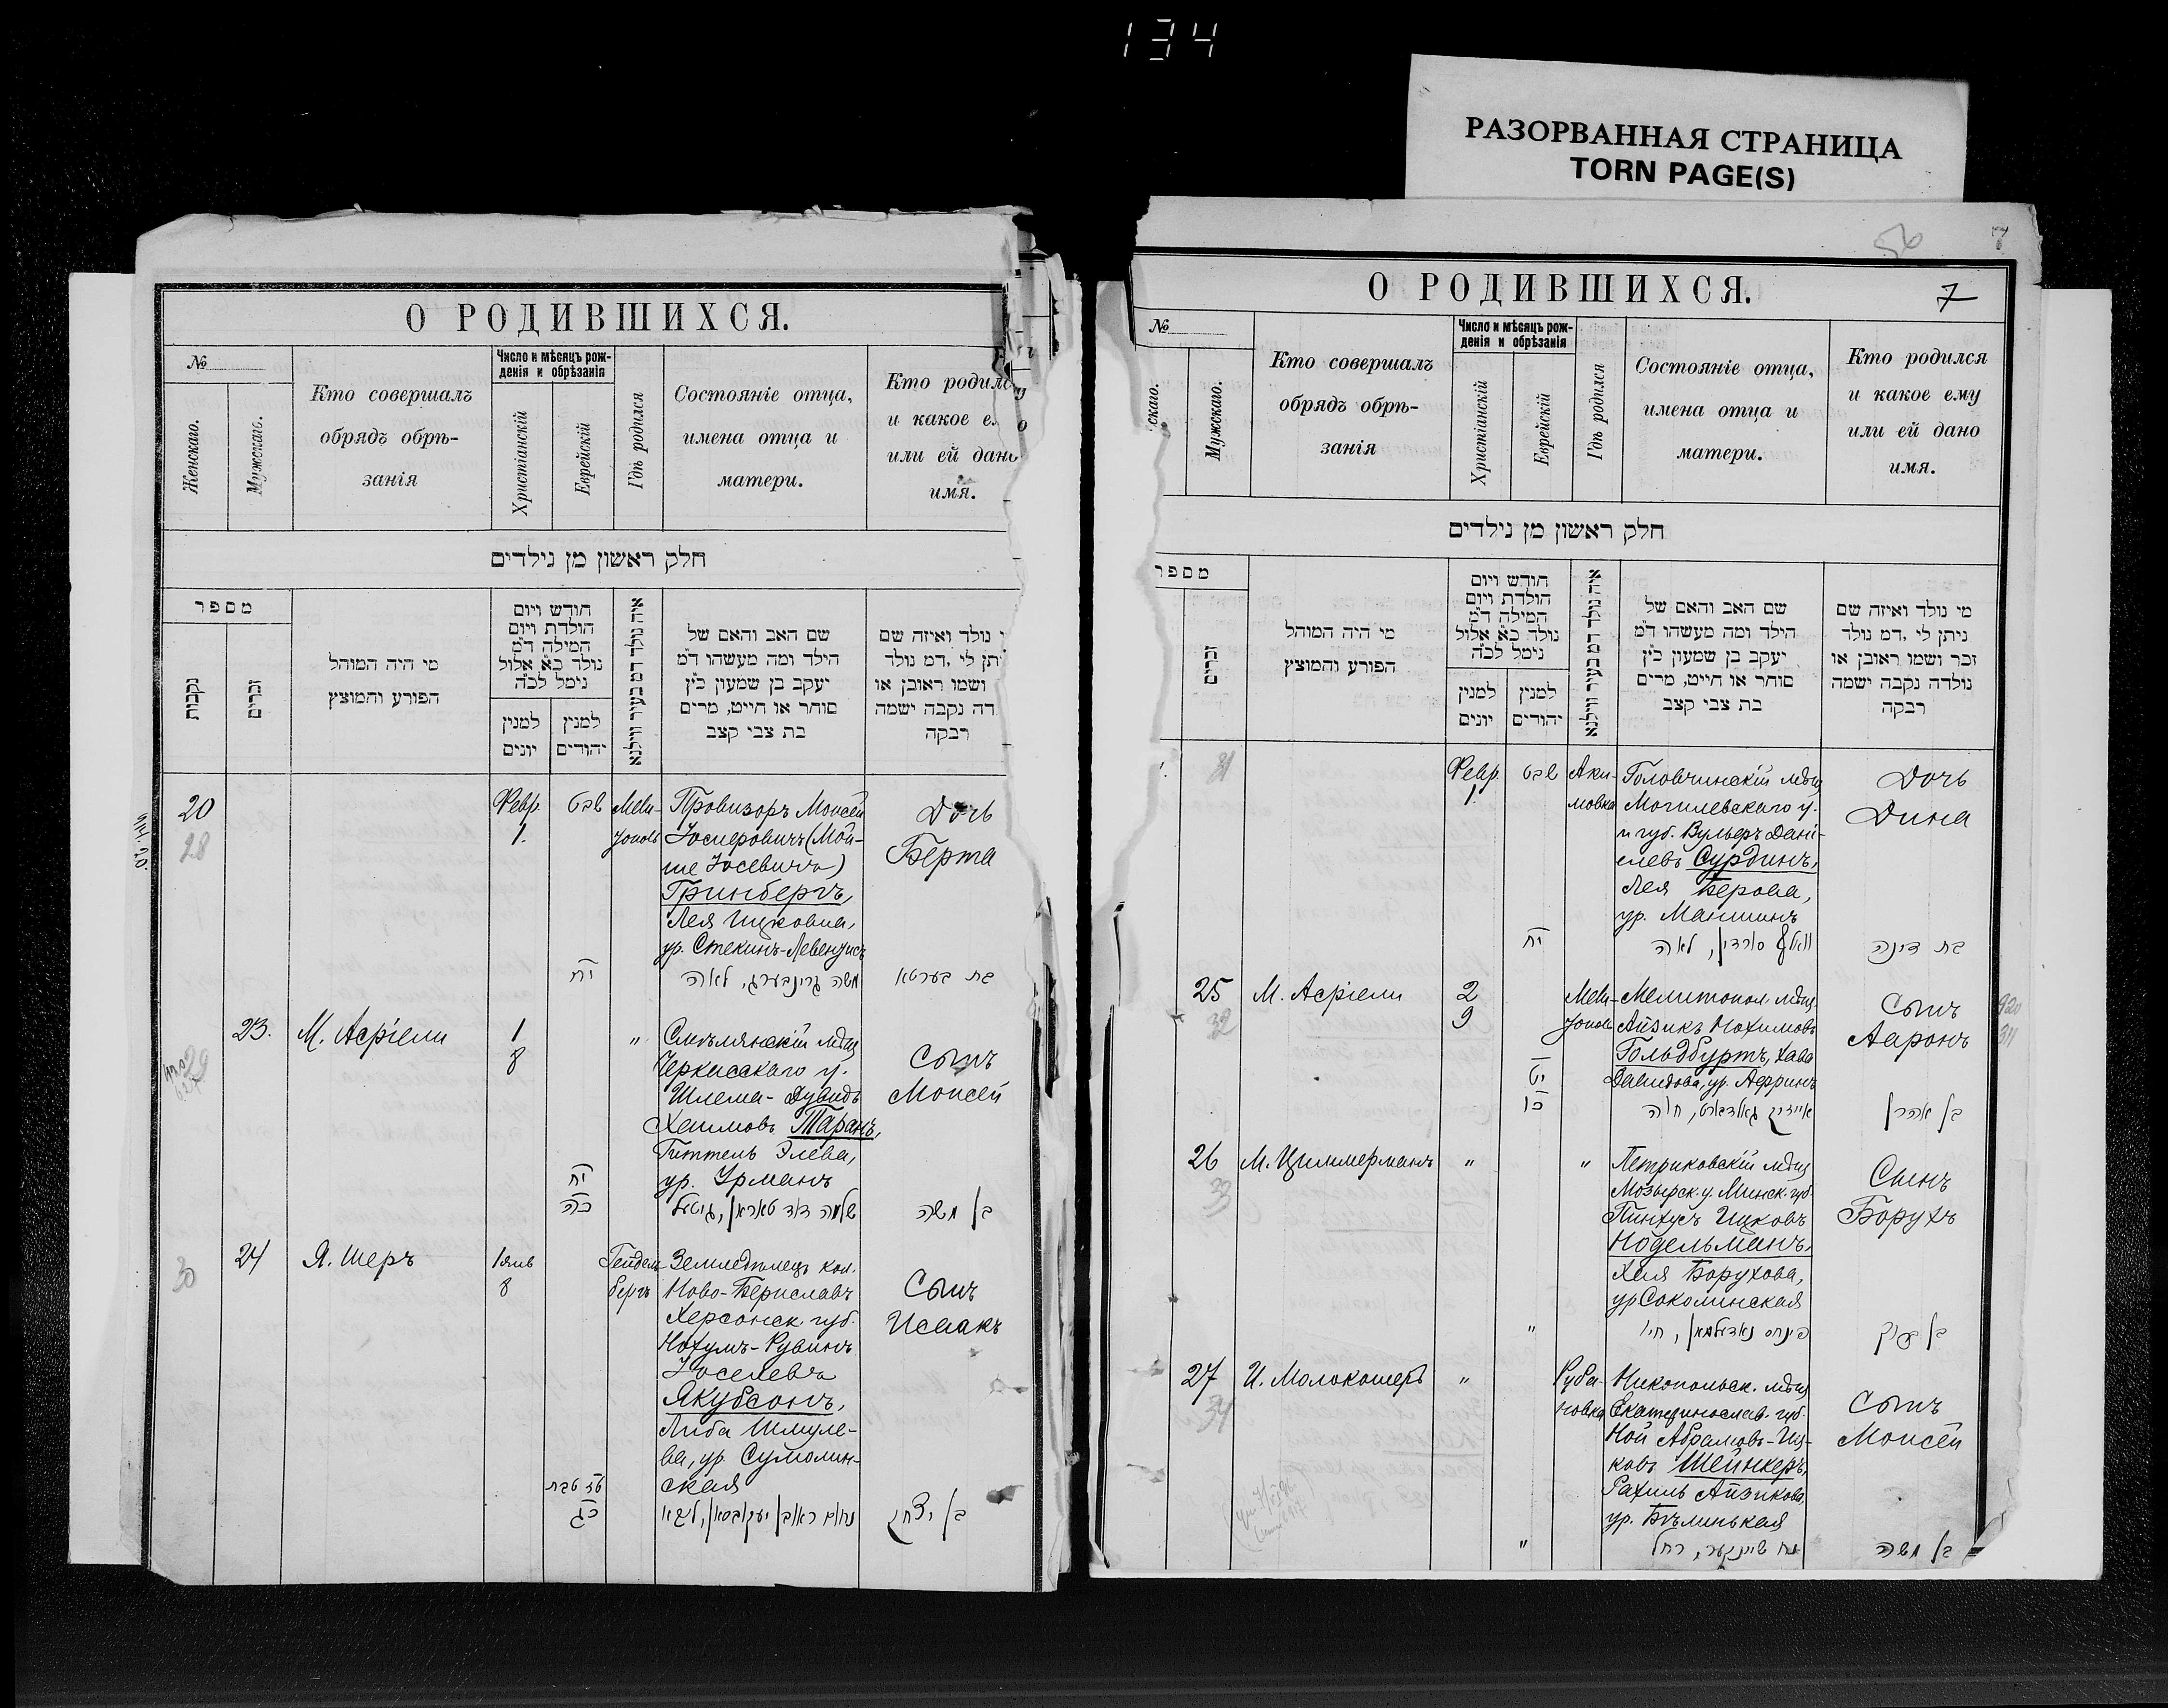 134
РАЗОРВАННАЯ СТРАНИЦА
TORN PAGE(S)
О РОДИВШИХСЯ.
№
Женскаго.
Мужскаго.
Кто совершалъ
обрядъ обрѣ-
занія
Число и мѣсяцъ рож-
денія и обрѣзанія
Христіанскій
Еврейскій
Гдѣ родился
Состояніе отца,
имена отца и
матери.
Кто родилс
и какое е
или ей дано
имя.
חלק ראשון מן נילדים
מספר
נקבות
זכרים
מי היה המוהל
הפורע והמוצץ
חודש ויום
הולדת ויום
המילה ד״מ
נולד כ״א אלול
נימל לכ״ה
למנין
יונים
למנין
יהודים
איה נולד דמ בעיר ווילנא
שם האב והאם של
הילד ומה מעשהו ד״מ
יעקב בן שמעון כ״ץ
סוחר או חייט, מרים
בת צבי קצב
נולד ואיזה שם
תן לי ,דמ נולד
ושמו ראובן או
דה נקבה ישמה
רבקה
20
28
Февр.
1.
שבט
Мели-
тополь
Провизоръ Моисей
Іосифовичъ (Мой-
ше Іосевичъ)
Гринбергъ,
Лея Ицковна,
ур. Стекинъ-Левензисъ
Дочь
Берта
יח
משה גרינבערג, לאה
בת בערטא
23.
29
М. Асріели
1
8
"
Смѣлянскій мѣщ
Черкасскаго у.
Шлема-Дувидъ
Хаимовъ Таранъ,
Гиттель Элева,
ур. Урманъ
Сынъ
Моисей
יח
כה
שלמה דוד טאראן, גיטל
בן משה
24
30
Я. Шеръ
1 янв
8
Гейдел-
бергъ
Земледѣлецъ кол.
Ново-Бериславъ
Херсонск губ.
Нохумъ-Рувинъ
Іоселевъ
Якубсонъ,
Либа Шмуле-
ва, ур. Сумолин-
ская
Сынъ
Исаакъ
טז טבת
כג
נחום ראובן יעקובסאן, ליבא
בן יצחק
56
7
О РОДИВШИХСЯ.
7
№
скаго.
Мужскаго.
Кто совершалъ
обрядъ обрѣ-
занія
Число и мѣсяцъ рож-
денія и обрѣзанія
Христіанскій
Еврейскій
Гдѣ родился
Состояніе отца,
имена отца и
матери.
Кто родился
и какое ему
или ей дано
имя.
חלק ראשון מן נילדים
מספר
זכרים
מי היה המוהל
הפורע והמוצץ
חודש ויום
הולדת ויום
המילה ד״מ
נולד כ״א אלול
נימל לכ״ה
למנין
יונים
למנין
יהודים
איה נולד דמ בעיר ווילנא
שם האב והאם של
הילד ומה מעשהו ד״מ
יעקב בן שמעון כ״ץ
סוחר או חייט, מרים
בת צבי קצב
מי נולד ואיזה שם
ניתן לי ,דמ נולד
זכר ושמו ראובן או
נולדה נקבה ישמה
רבקה
31
Февр.
1.
שבט
Аки-
мовка
Головчинскій мѣщ
Могилевскаго у.
и губ. Вульфъ Дані-
елевъ Сурдинъ,
Лея Берова,
ур. Маншинъ
Дочь
Дина
יח
וואלף סורדין, לאה
בת דינה
25
32
М. Асріели
2
9
Мели-
тополь
Мелитопол мѣщ.
Айзикъ Нохимовъ
Гольдбуртъ, Хава
Давидова, ур. Афринъ
Сынъ
Ааронъ
יט
כו
אייזיק גאלדבורט, חוה
בן אהרן
26
33
М. Циммерманъ
"
"
Петриковскій мѣщ
Мозырск. у. Минск. губ.
Пинхусъ Ицковъ
Нодельманъ,
Хая Борухова,
ур Соколинская
Сынъ
Борухъ
"
פינחס נאדעלמאן, חיה
27
34
И. Молокошеръ
"
Руба-
новка
Никопольск. мѣщ
Екатеринослав. губ.
Ной Абрамовъ-Иц-
ковъ Шейнкеръ,
Рахиль Айзикова
ур. Бѣлинькая
Сынъ
Моисей
"
נח שיינקער, רחל
בן משה